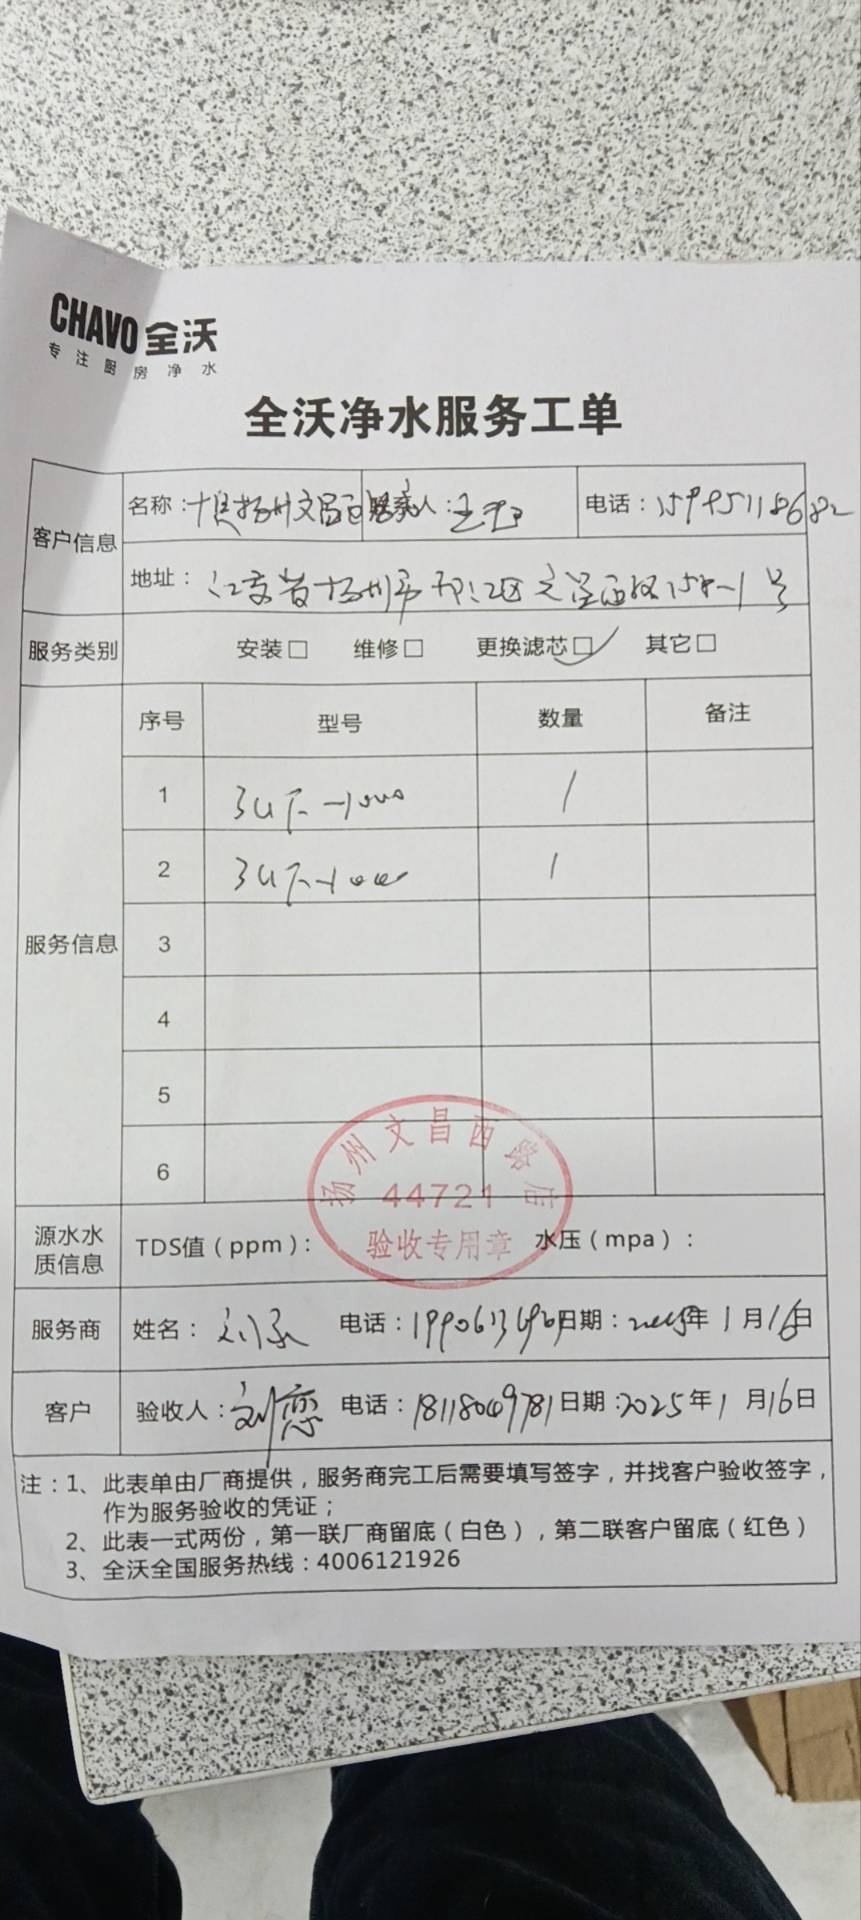 CHAVO 全沃
专注厨房净水
全沃净水服务工单
客户信息
名称：扬州文昌西 联系人：王 电话：15995118682
地址：江苏省扬州市邗江区文昌西路158-1号
服务类别 安装□ 维修□ 更换滤芯□✓ 其它□
服务信息
序号 型号 数量 备注
1 3UF-1000 1
2 3UF-1000 1
3
4
5
6
扬州文昌西路店
44721
验收专用章
源水水质信息 TDS值（ppm）： 水压（mpa）：
服务商 姓名：刘 电话： 日期：2025年1月16日
客户 验收人：刘恋 电话：18118049781 日期：2025年1月16日
注：1、此表单由厂商提供，服务商完工后需要填写签字，并找客户验收签字，
作为服务验收的凭证；
2、此表一式两份，第一联厂商留底（白色），第二联客户留底（红色）
3、全沃全国服务热线：4006121926